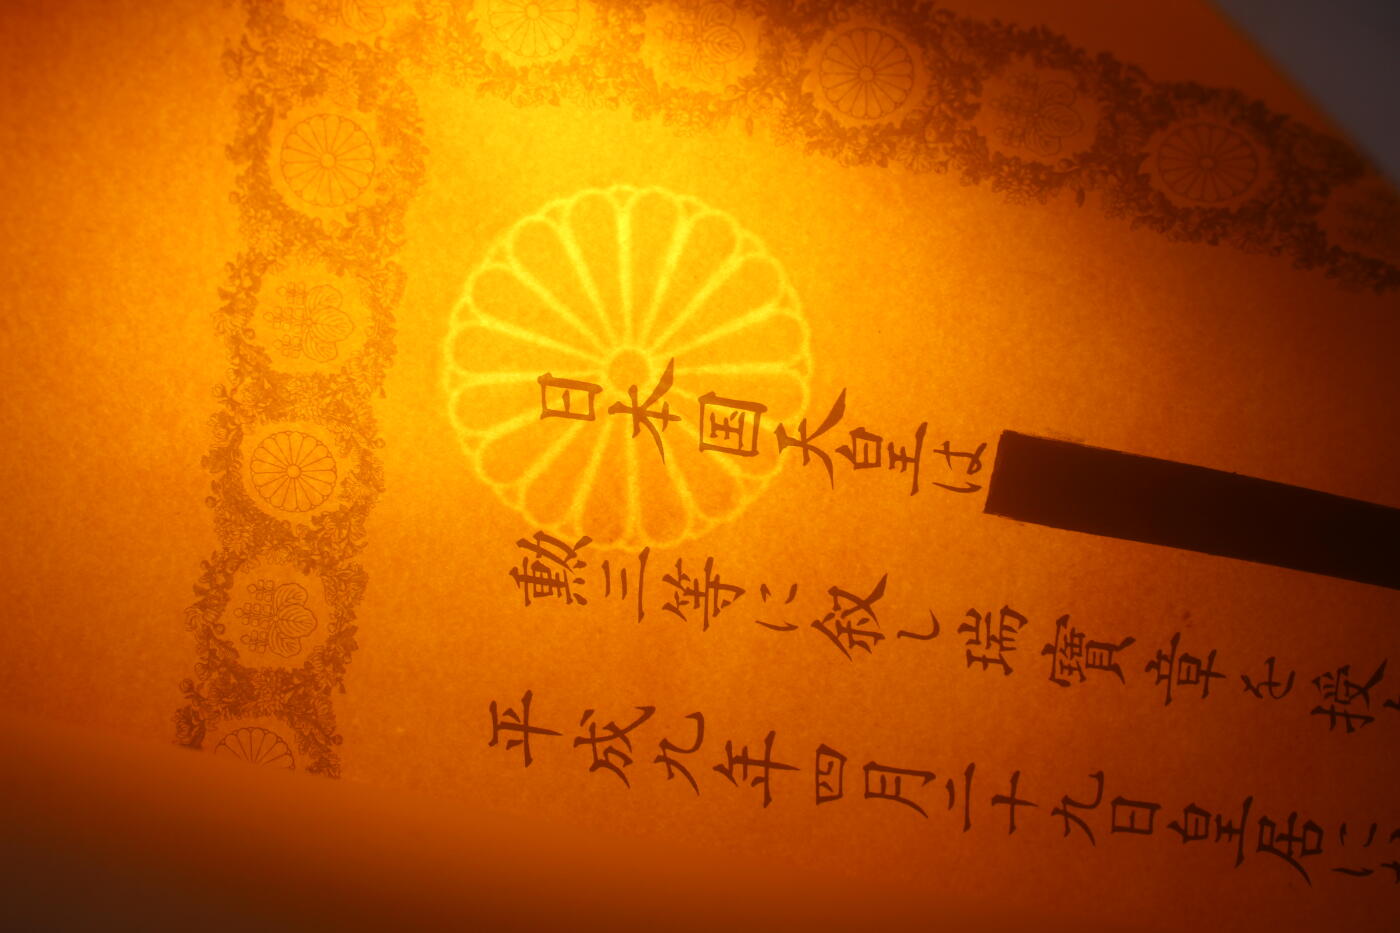 日本国天皇は
勲三等に叙し瑞寶章を授
平成九年四月二十九日皇居に